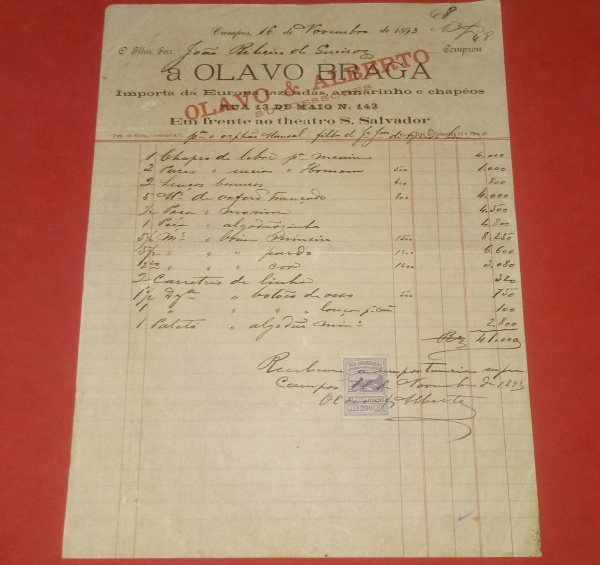 48
Campos, 16 de Novembro de 1893
48
O Illm. Snr. João Ribeiro de Queiroz Comprou
a OLAVO BRAGA
OLAVO & ALBERTO
SUCCESSORES
Importa da Europa fazendas, armarinho e chapéos
RUA 13 DE MAIO N. 143
Em frente ao theatro S. Salvador
pª o orphão Manoel, filho de
1 Chapeo de lebre pª menino 4.000
2 Pares " meias " Homem 500 1.000
2 Lenços brancos 400 800
5 Mº de oxford trançado 800 4.000
Peça " 4.500
1 Peça " algodãosinho 4.800
5½ Mº " Brim 1500 8.250
5½ " " " pardo 1200 6.600
" " " cor 1400 3.080
2 Carreteis de linha 320
1½ " botões de osso 500 750
1 " " " louça 100
1 Paletó " algodão 2.800
Rs 41.000
Recebemos a importancia supra
Campos Novembro de 1893
Olavo & Alberto
200